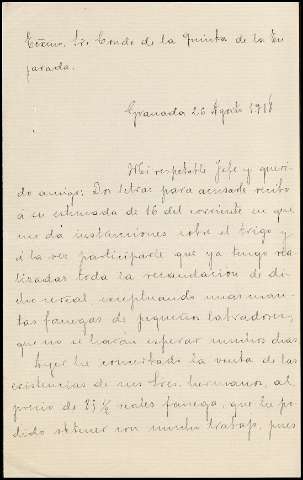 Excmo. Sr. Conde de la Quinta de la En
jarada.
Granada 26 Agosto 1918
Mi respetable Jefe y queri-
do amigo: Dos letras para acusarle recibo
á su estimada de 16 del corriente en que
me dá instrucciones sobre el trigo y
á la vez participarle que ya tengo rea-
lizadas toda la recaudacion de di-
cho cereal exceptuando unas cuan-
tas fanegas de pequeños labradores,
que no se harán esperar muchos dias
Ayer he concertado la venta de las
existencias de sus tres hermanos, al
precio de 85 ½ reales fanega, que he po-
dido obtener con mucho trabajo, pues